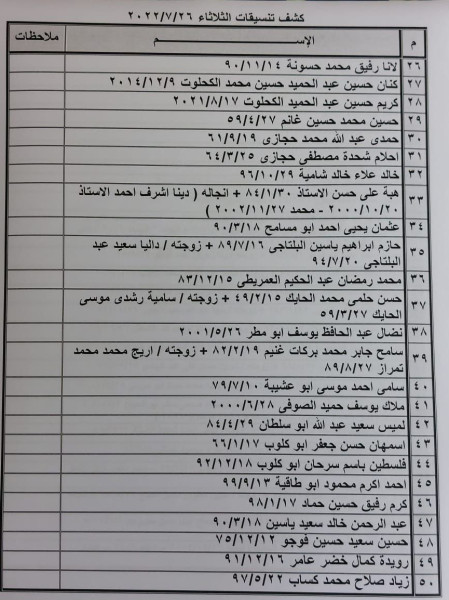 كشف تنسيقات الثلاثاء ٢٠٢٢/٧/٢٦
م الإســـــم ملاحظات
٢٦ لانا رفيق محمد حسونة ٩٠/١١/١٤
٢٧ كنان حسين عبد الحميد حسين محمد الكحلوت ٢٠١٤/١٢/٩
٢٨ كريم حسين عبد الحميد الكحلوت ٢٠٢١/٨/١٧
٢٩ حسين محمد حسين غانم ٥٩/٤/٢٧
٣٠ حمدى عبد الله محمد حجازى ٦١/٩/١٩
٣١ احلام شحدة مصطفى حجازى ٦٤/٣/٢٥
٣٢ خالد علاء خالد شامية ٩٦/١٠/٢٩
٣٣ هبة على حسن الاستاذ ٨٤/١/٣٠ + انجاله ( دينا اشرف احمد الاستاذ
٢٠٠٠/١٠/٢٠ - محمد ٢٠٠٢/١١/٢٧ )
٣٤ عثمان يحيى احمد ابو مسامح ٩٠/٣/١٨
٣٥ حازم ابراهيم ياسين البلتاجى ٨٩/٧/١٦ + زوجته / داليا سعيد عبد
البلتاجى ٩٤/٧/٢٠
٣٦ محمد رمضان عبد الحكيم العمريطى ٨٣/١٢/١٥
٣٧ حسن حلمى محمد الحايك ٤٩/٢/١٥ + زوجته / سامية رشدى موسى
الحايك ٥٩/٣/٢٧
٣٨ نضال عبد الحافظ يوسف ابو مطر ٢٠٠١/٥/٢٦
٣٩ سامح جابر محمد بركات غنيم ٨٢/٢/١٩ + زوجته / اريج محمد محمد
تمراز ٨٩/٨/٢٧
٤٠ سامى احمد موسى ابو عشيبة ٧٩/٧/١٠
٤١ ملاك يوسف حميد الصوفى ٢٠٠٠/٦/٢٨
٤٢ لميس سعيد عبد الله ابو سلطان ٨٤/٤/٢٩
٤٣ اسمهان حسن جعفر ابو كلوب ٦٦/١/١٧
٤٤ فلسطين باسم سرحان ابو كلوب ٩٢/١٢/١٨
٤٥ احمد اكرم محمود ابو طاقية ٩٩/٩/١٣
٤٦ كرم رفيق حسين حماد ٩٨/١/١٧
٤٧ عبد الرحمن خالد سعيد ياسين ٩٠/٣/١٨
٤٨ حسين سعيد حسين فوجو ٧٥/١٢/١٢
٤٩ رويدة كمال خضر عامر ٩١/١٢/١٦
٥٠ زياد صلاح محمد كساب ٩٧/٥/٢٢